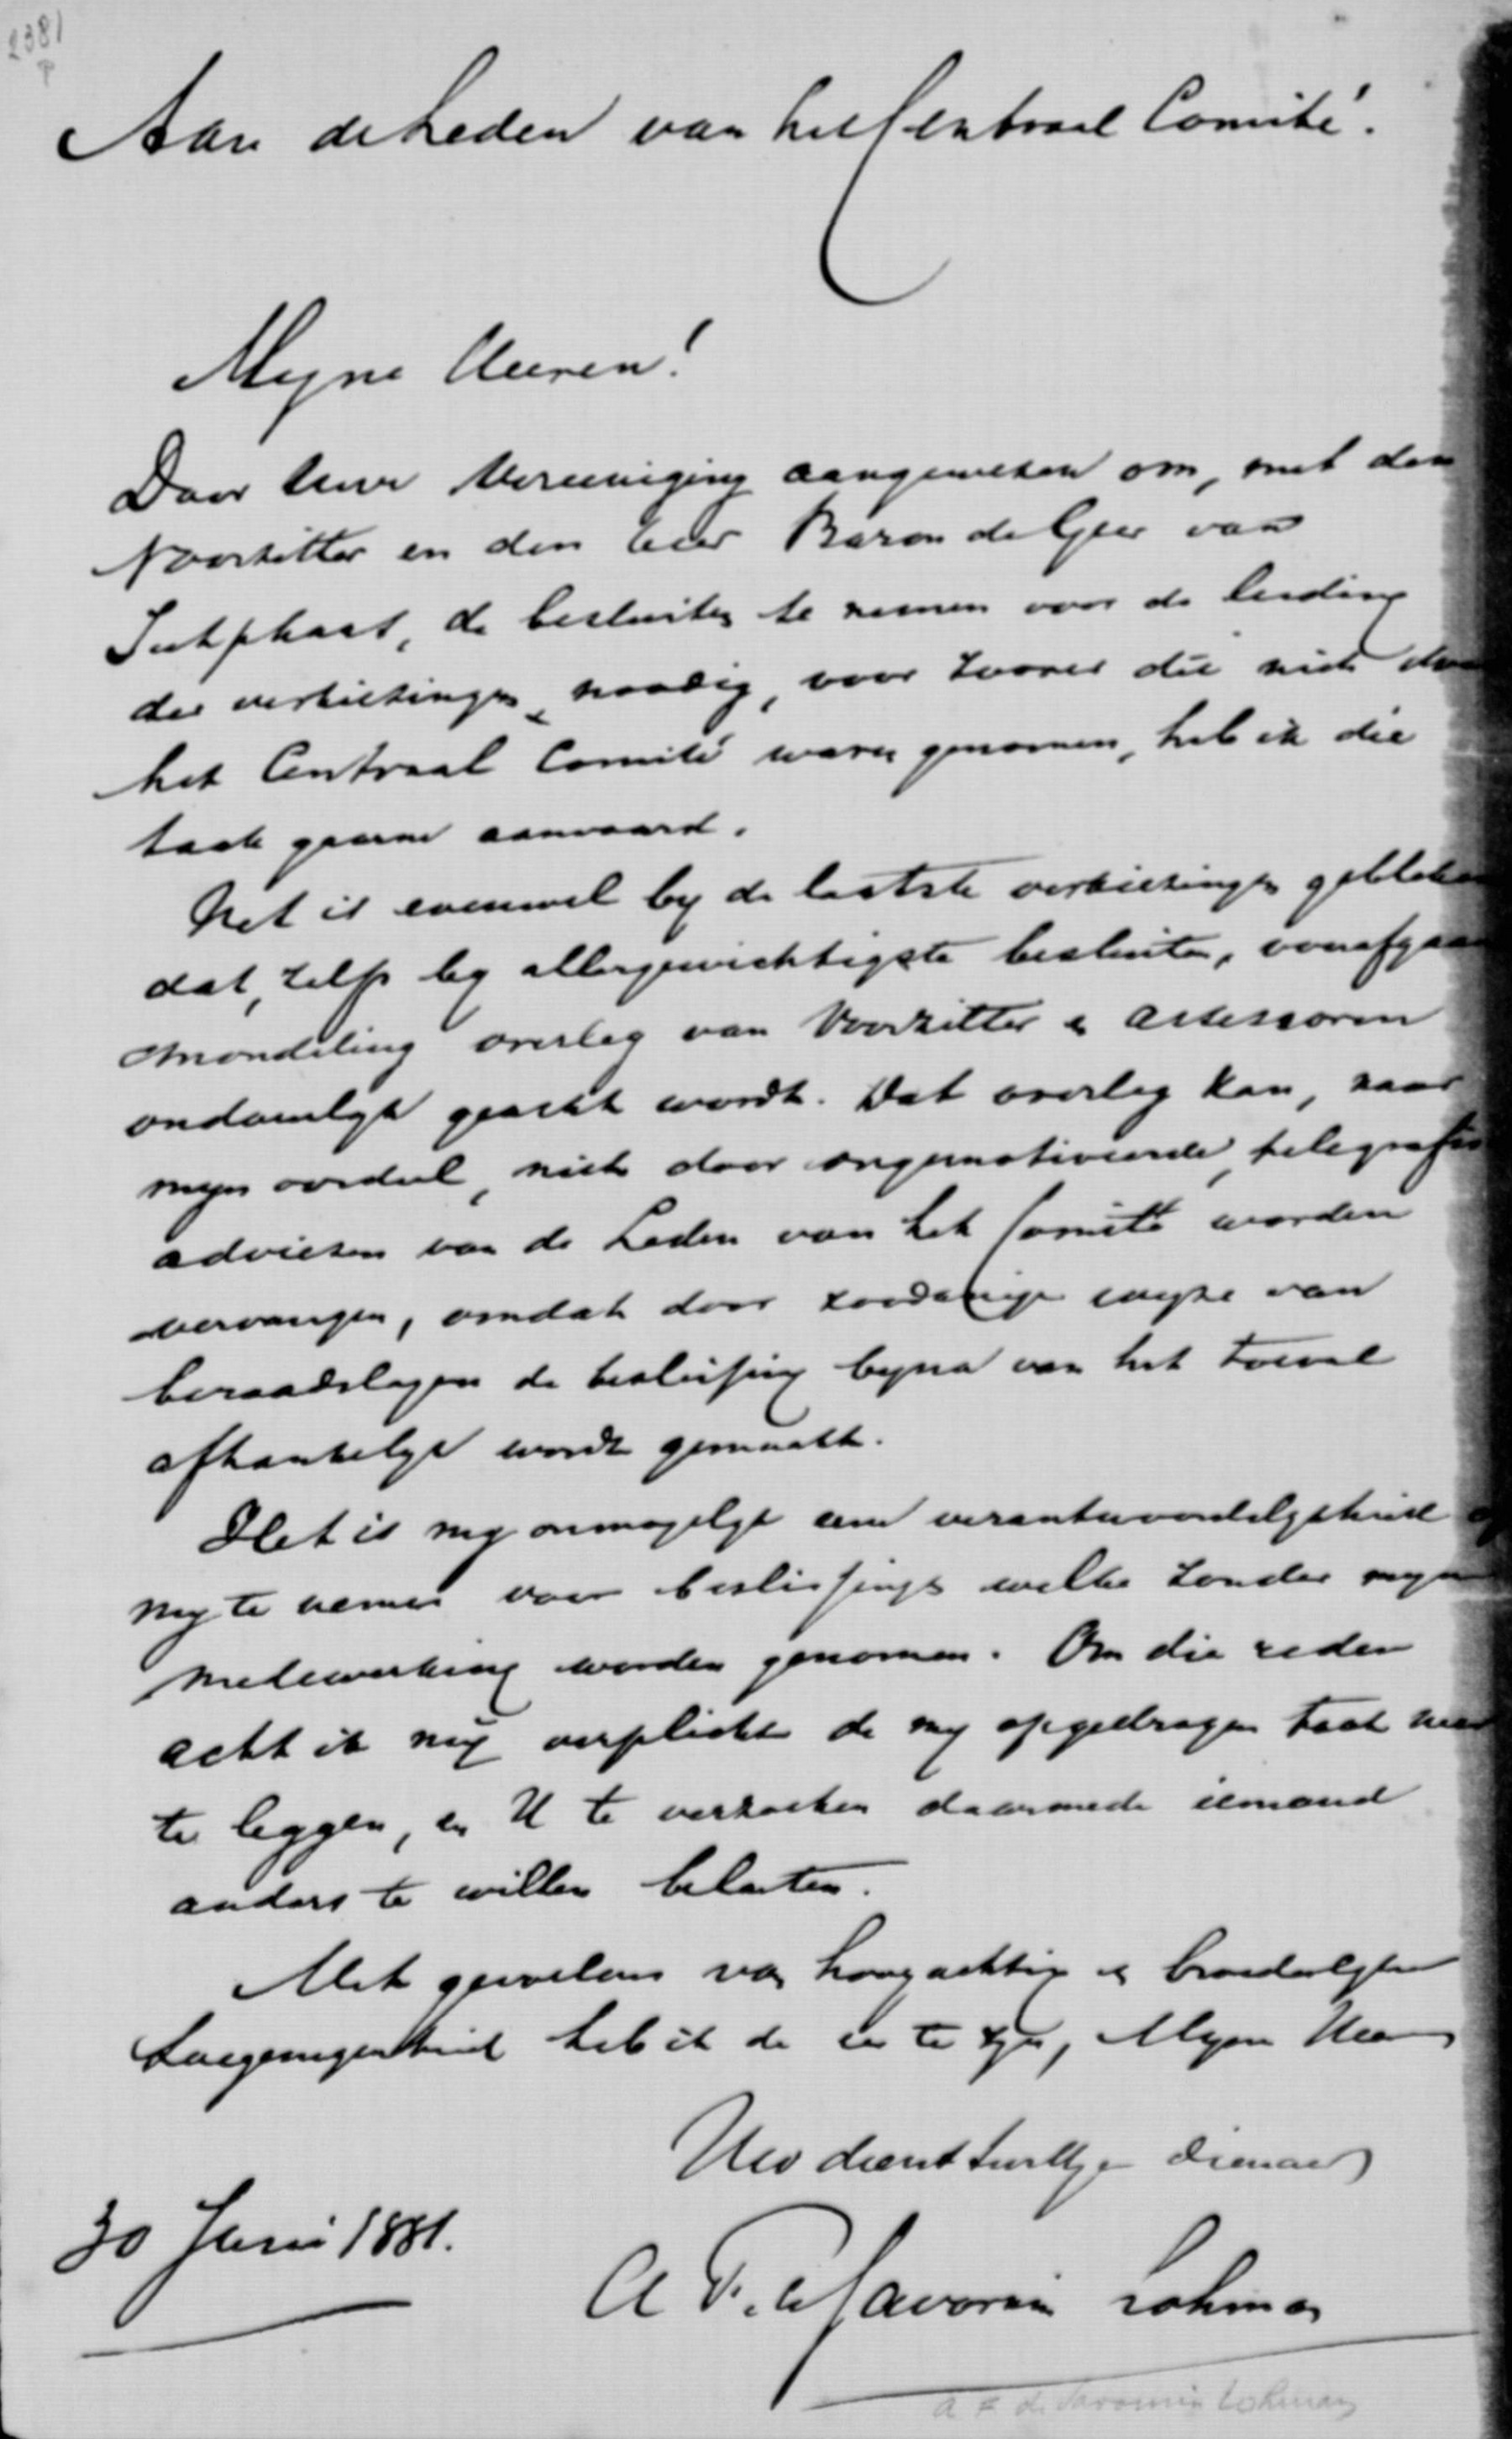 2381
P
Aan de Leden van het Centraal Comité.
Myne Heeren!
Door Uwe Vereeniging aangewezen om, met den
Voorzitter en den heer Baron de Geer van
Jutphaas, de besluiten te nemen voor de leiding
der verkiezingen noodig, voor zoover die niet door
het Centraal Comité waren genomen, heb ik die
taak gaarne aanvaard.
Het is evenwel by de laatste verkiezingen gebleken
dat, zelfs by allergewichtigste besluiten, voorafgaand
mondeling overleg van Voorzitter en Assessoren
ondoenlyk geacht wordt. Dat overleg kan, naar
myn oordeel, niet door ongemotiveerde, telegrafische
adviezen van de Leden van het Comité worden
vervangen, omdat door zoodanige wyze van
beraadslagen de beslissing byna van het toeval
afhankelyk wordt gemaakt.
Het is my onmogelyk eene verantwoordelykheid op
my te nemen voor beslissingen welke zonder myne
medewerking worden genomen. Om die reden
acht ik my verplicht de my opgedragen taak neer
te leggen, en U te verzoeken daarmede iemand
anders te willen belasten.
Met gevoelens van hoogachting en broederlyke
toegenegenheid heb ik de eer te zyn, Myne Heeren
Uw dienstwillige dienaar
30 Juni 1881.
A F. de Savornin Lohman
a F de Savornin Lohman